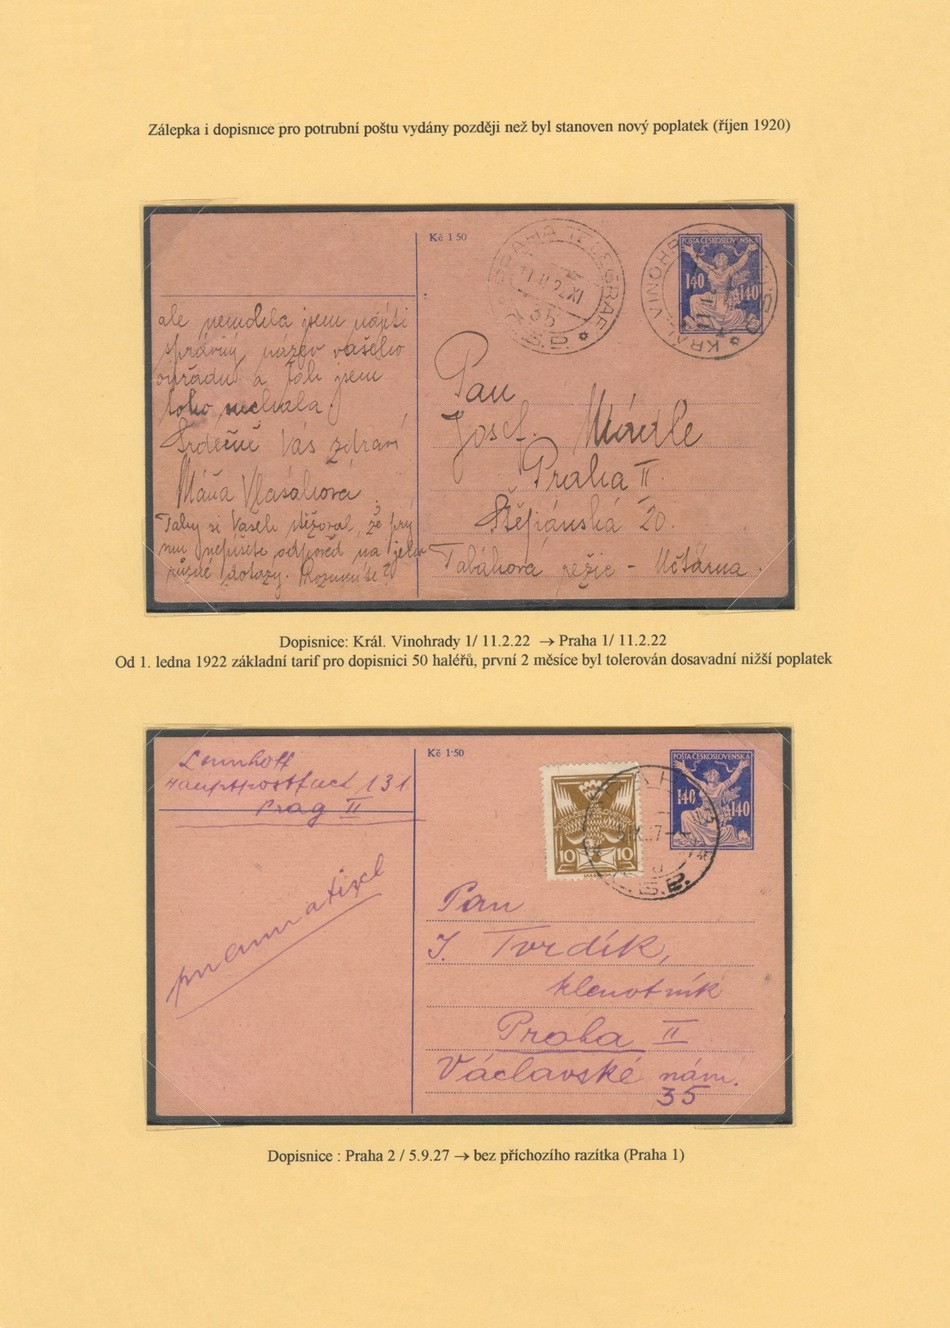 Zálepka i dopisnice pro potrubní poštu vydány později než byl stanoven nový poplatek (říjen 1920)
Kč 1 50
PRAHA TELEGRAF
35
POŠTA ČESKOSLOVENSKÁ
140 140
KRÁL. VINOHR
ale nemohla jsem najíti
správný název vašeho
ouřadu a tak jsem
toho nechala
Srdečně Vás zdraví
Máňa Vlasáková
Taky si Vašek stěžoval, že prý
mu nepíšete odpověď na jeho
různé dotazy. Rozumíte?
Pan
Josef Mádle
Praha II.
Štěpánská 20.
Tabáková režie - Účtárna.
Dopisnice: Král. Vinohrady 1/ 11.2.22 → Praha 1/ 11.2.22
Od 1. ledna 1922 základní tarif pro dopisnici 50 haléřů, první 2 měsíce byl tolerován dosavadní nižší poplatek
Lennhoff
Hauptpostfach 131
Prag II
Kč 1·50
POŠTA ČESKOSLOVENSKÁ
140 140
10 10
pneumatisch
Pan
J. Tvrdík,
klenotník
Praha II
Václavské nám.
35
Dopisnice : Praha 2 / 5.9.27 → bez příchozího razítka (Praha 1)